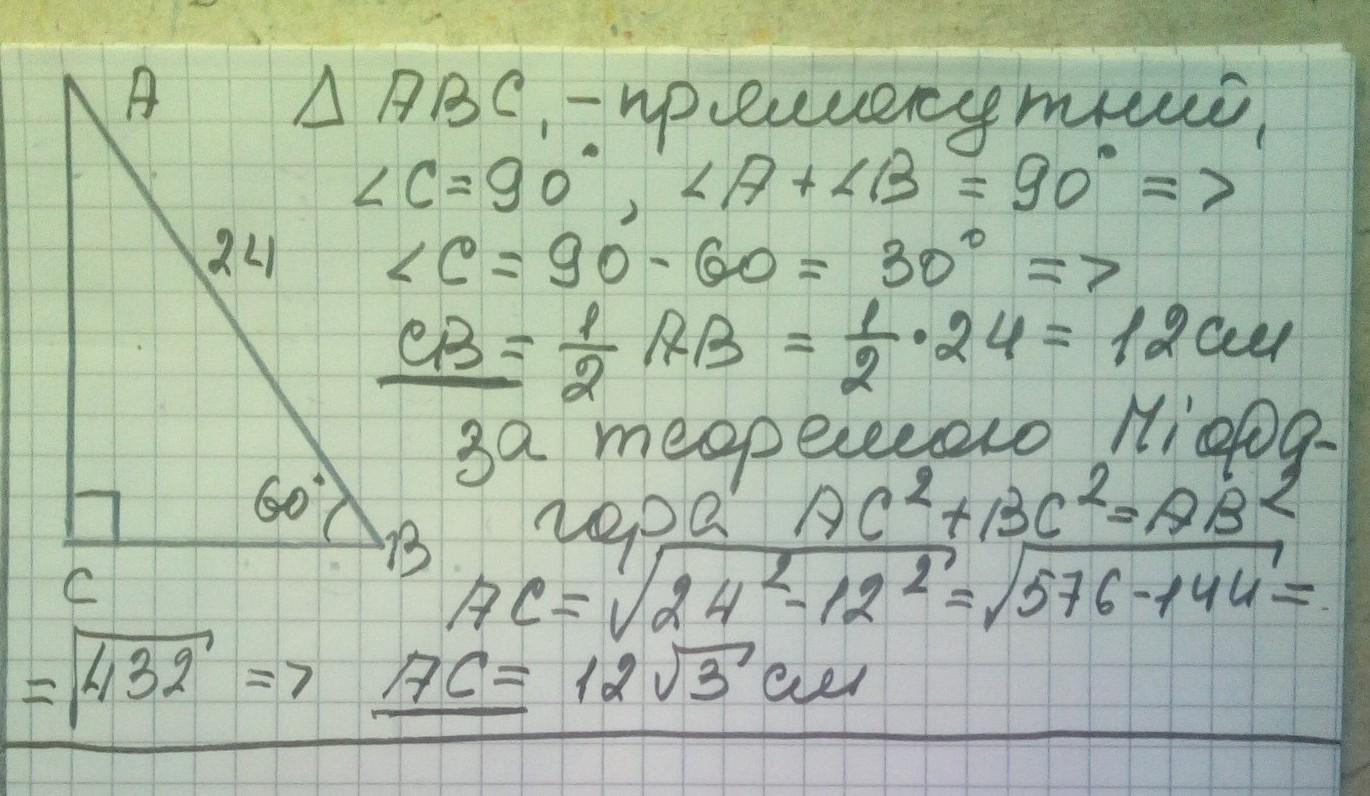 A
Δ ABC, - прямокутний,
∠C = 90°, ∠A + ∠B = 90° =>
24
∠C = 90° - 60 = 30° =>
CB = 1/2 AB = 1/2 · 24 = 12 см
за теоремою Піфа-
60°
гора AC² + BC² = AB²
B
C
AC = √24² - 12² = √576 - 144 =
= √432 => AC = 12√3 см